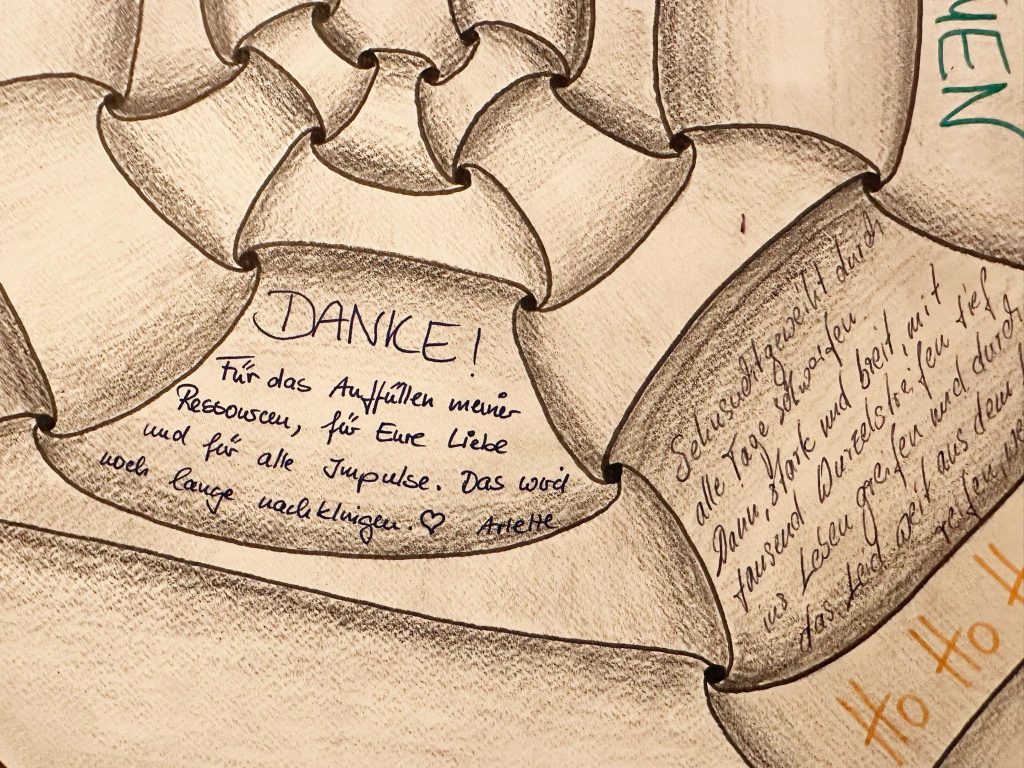 DANKE!
Für das Auffüllen meiner
Ressourcen, für Eure Liebe
und für alle Impulse. Das wird
noch lange nachklingen. ♡ Arlette
Sehnsuchtgeweiht durch
alle Tage schweifen
Dann, stark und breit, mit
tausend Wurzelstreifen tief
ins Leben greifen und durch
das Leid weit aus dem
reifen,
HO HO H
GEN